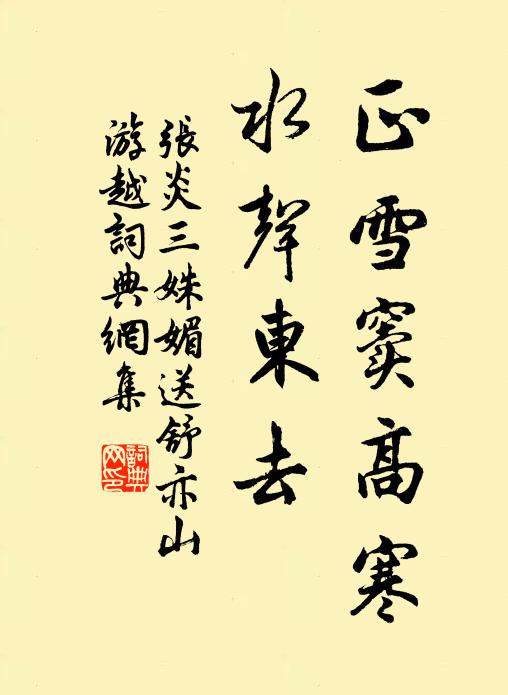 正雪竇高寒
水聲東去
張炎三姝媚送舒亦山
游越詞典網集
詞典網印